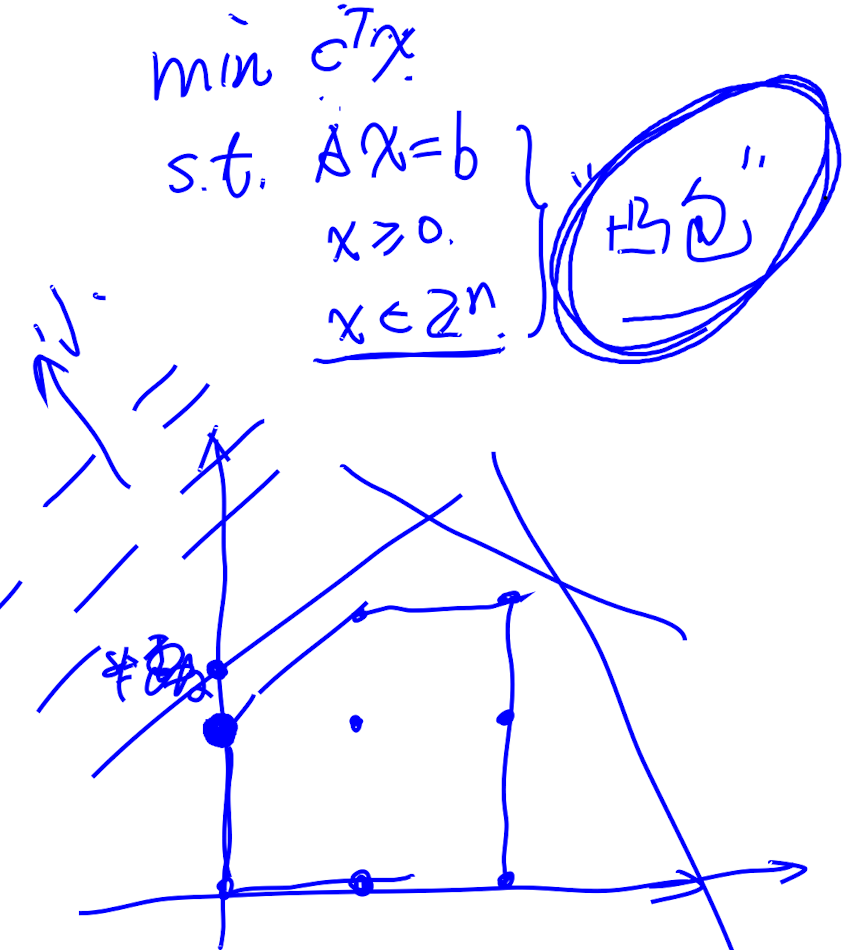 min cᵀx
s.t. Ax=b
x≥0.
x∈Zⁿ.
"凸包"